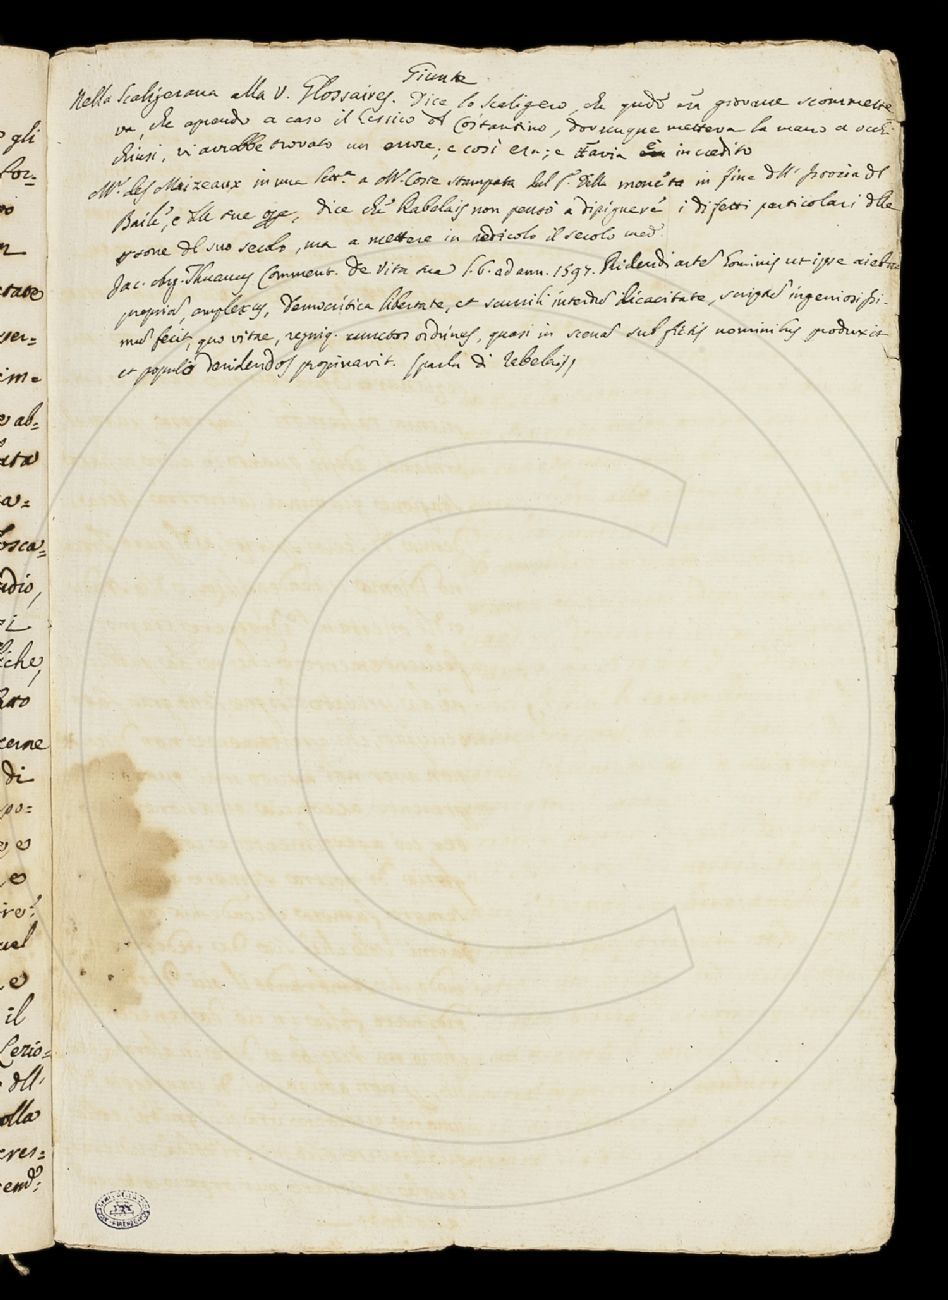 Giunte
Nella Scaligerana alla V. Glossaires. Dice lo Scaligero, che era giovane scommette
va, che aprendo a caso il Lessico di Costantino, dovunque metteva la mano a occhi
chiusi, vi avrebbe trovato un errore; e così era; e l'avia in credito
Mr. des Maizeaux in una lett.a a Mr. Coste stampata in fine dell'
Baile, e delle sue opp., dice che Rabelais non pensò a dipignere i difetti particolari delle
psone del suo secolo, ma a mettere in redicolo il secolo med.o
Jac. Aug. Thuanus Comment. de Vita sua l. 6. ad ann. 1597. Ridendi artem hominis ut ipse aiebat
propriam amplexus, democritica libertate, et scurrili interdum dicacitate, scriptum ingeniosissi-
mum fecit, quo vitae, regniq. cunctos ordines, quasi in scenam sub fictis nominibus produxit
et populo deridendos propinavit. (parla di Rebelais)
gli
im=
ab=
losca=
udio,
liche,
cerne
di
po=
e
il
Lerio=
dll'
olla
cres=